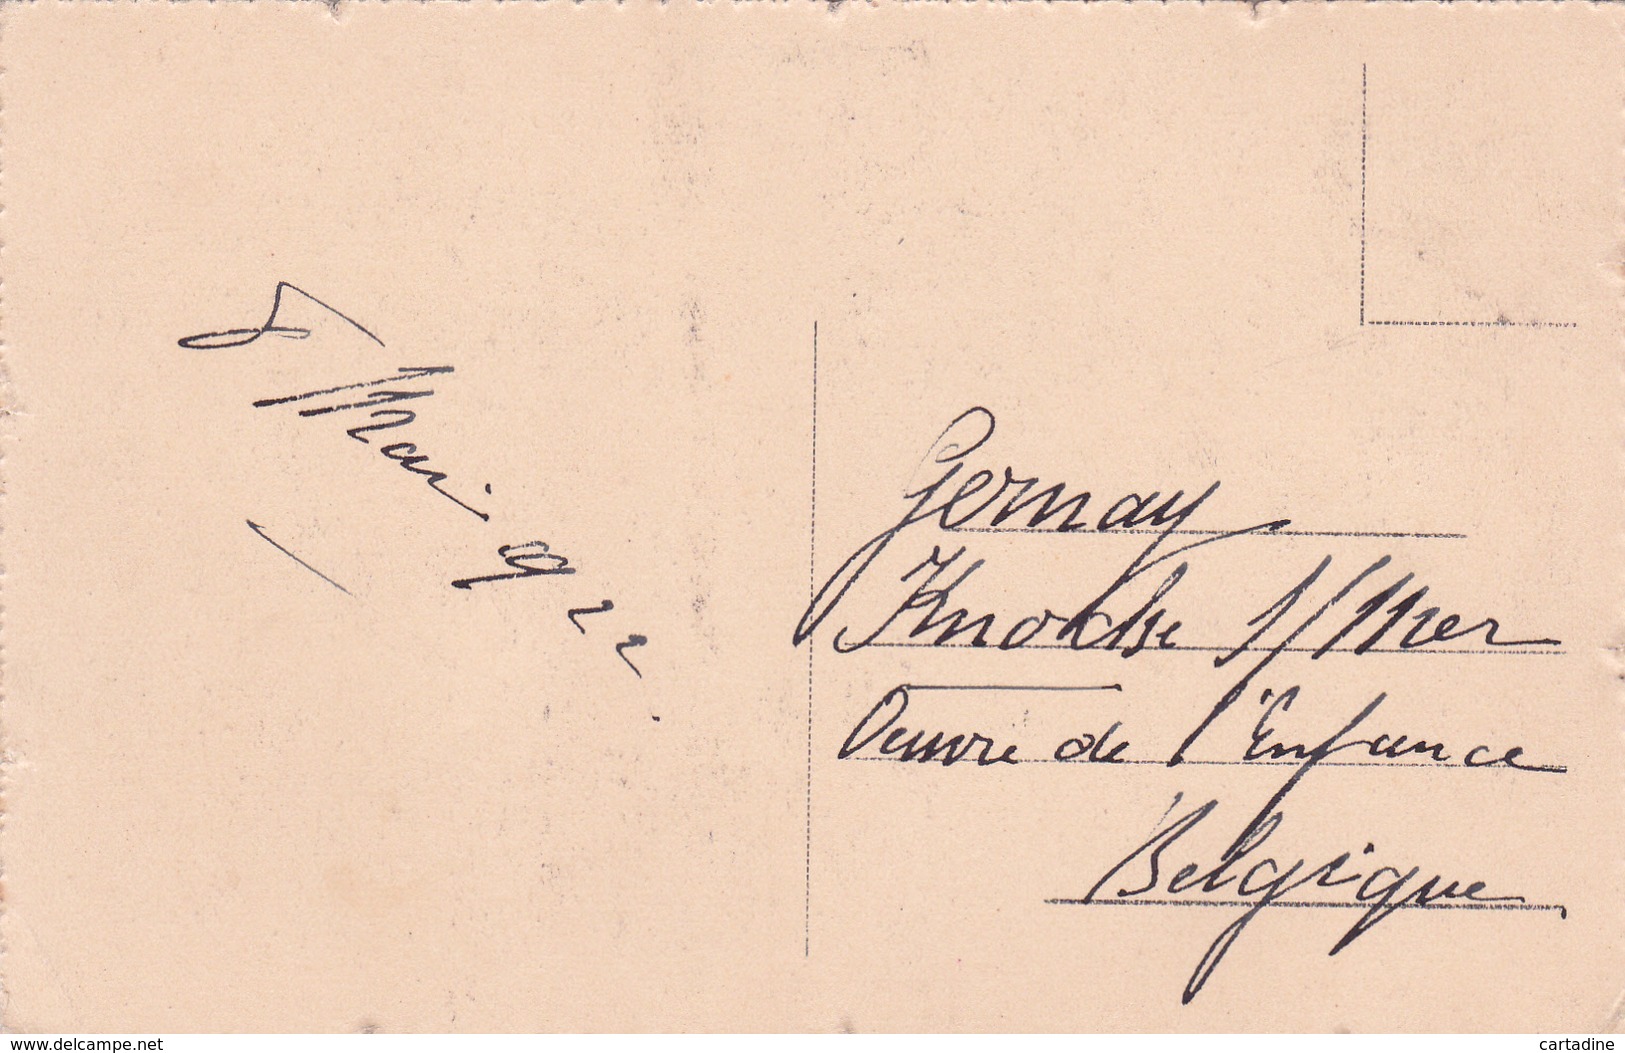 Mai 1922.
Gernay
Knocke s/Mer
Oeuvre de l'Enfance
Belgique
www.delcampe.net
cartadine